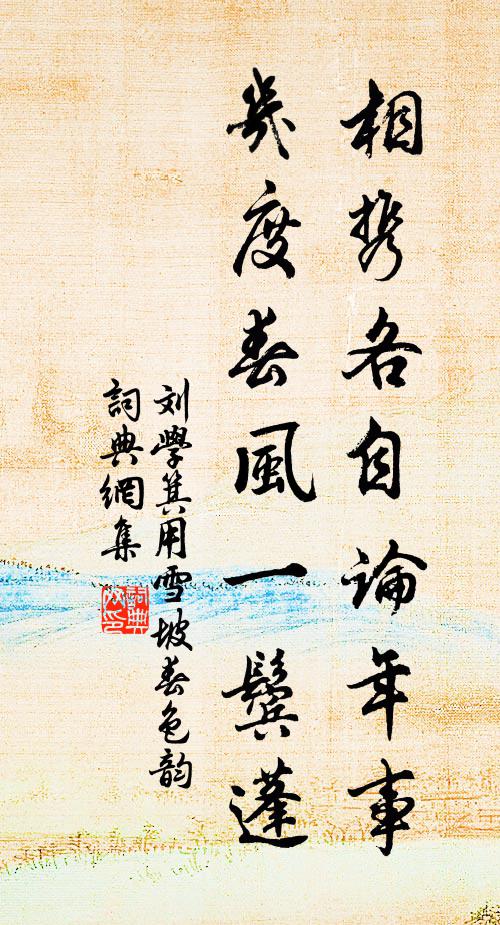 相携各自論年事
幾度春風一鬢蓬
刘學箕用雪坡春色韵
詞典網集